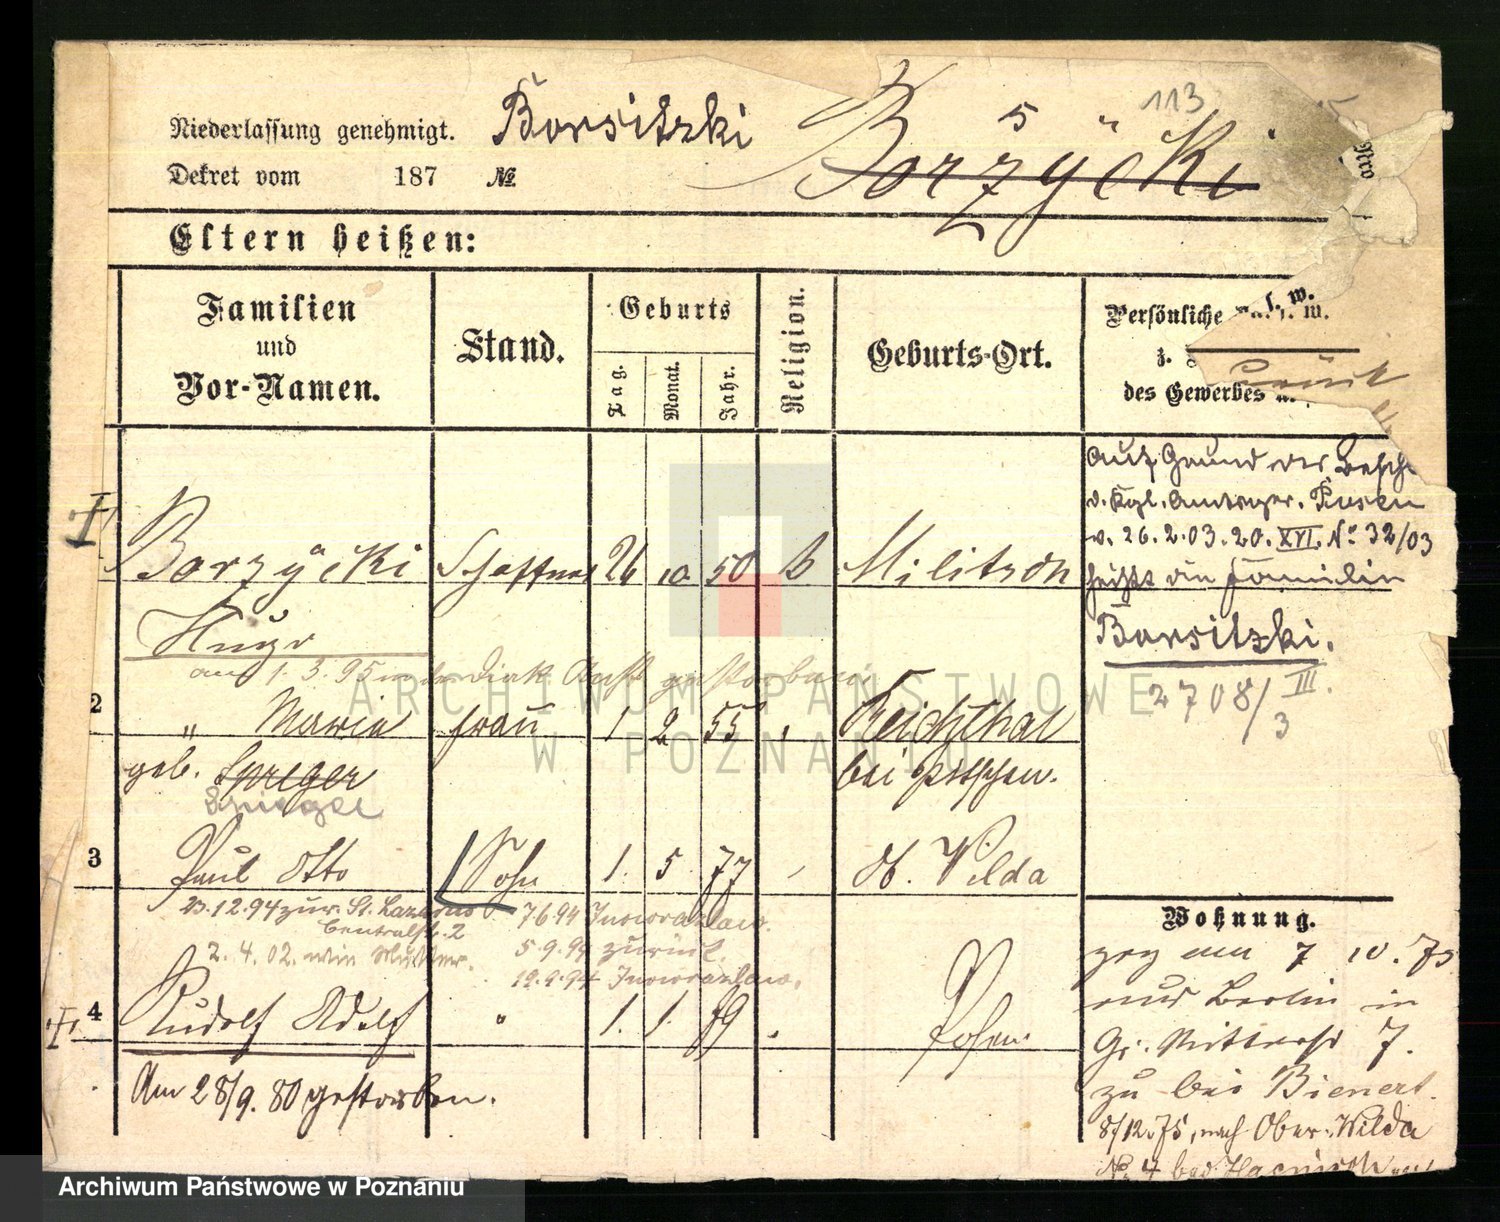 113
Niederlassung genehmigt. Borsitzki Borzÿcki
5
Dekret vom 187 №
Eltern heißen:
Familien und Vor-Namen.
Stand.
Geburts
Tag. Monat. Jahr.
Religion.
Geburts-Ort.
Persönliche
z.
des Gewerbes
Auf Grund der
v. 26.2.03. 20. XVI. No 32/03
heißt die Familie
Borsitzki.
2708/3 III.
Borzÿcki Schaffner 26 10 50 Militsch
Hugo
am 1. 3. 95 gestorben
2 " Maria Frau 1. 2 55 Reichthal
geb. Spieger bei Pitschen.
Spiegel
3 Paul Otto Sohn 1. 5. 77 O. Wilda
23.12.94 zur. St. Lazarus
2
2. 4. 02.
7.6.94 Inowrazlaw.
5.9.94 zurück.
19.9.94 Inowrazlaw.
4 Rudolf Adolf " 1. 1. 79 Posen
Am 28/9. 80 gestorben.
Wohnung.
zog am 7 10. 75
aus Berlin in
Gr. Ritterst 7.
zu bei Bienert.
8/12.75, nach Ober-Wilda
No 4 bei
ARCHIWUM PAŃSTWOWE
W POZNANIU
Archiwum Państwowe w Poznaniu